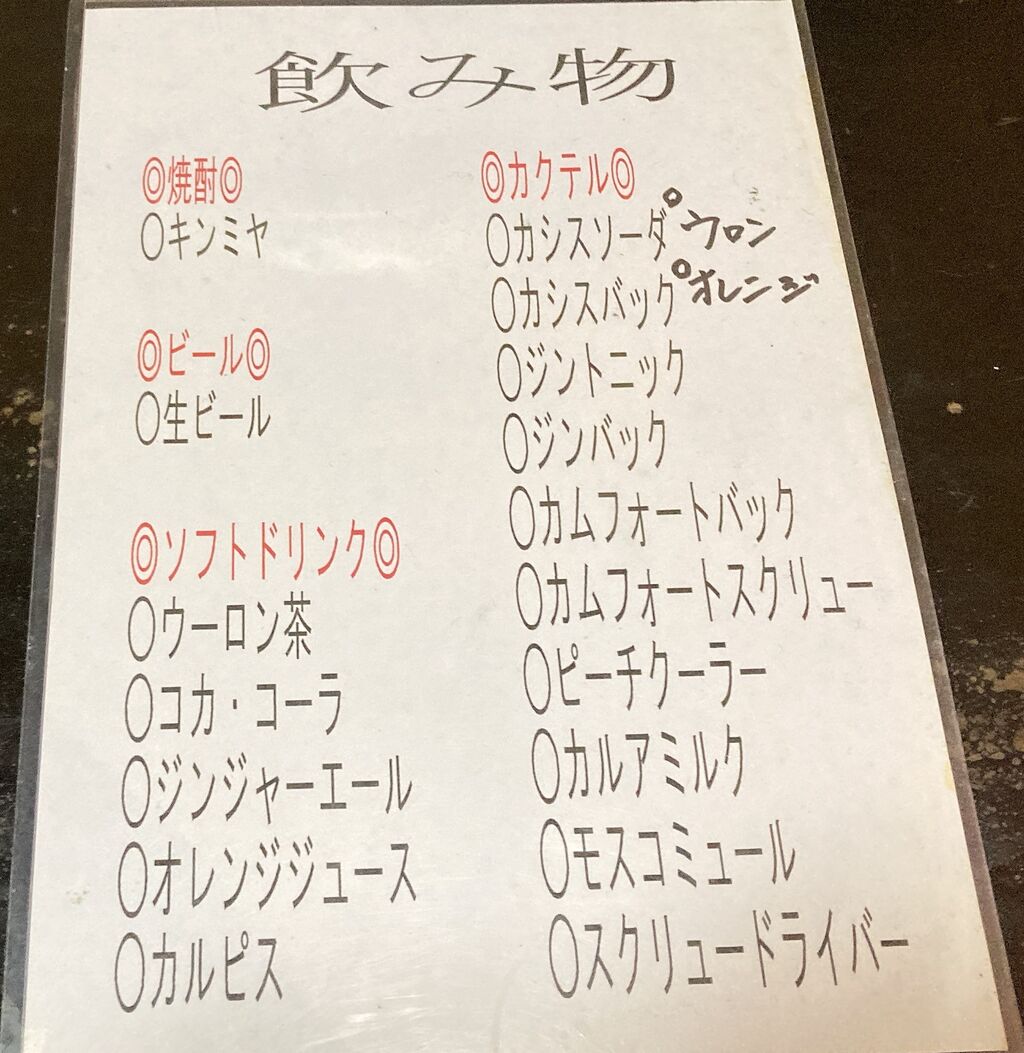 飲み物
◎焼酎◎
〇キンミヤ
◎ビール◎
〇生ビール
◎ソフトドリンク◎
〇ウーロン茶
〇コカ・コーラ
〇ジンジャーエール
〇オレンジジュース
〇カルピス
◎カクテル◎
〇カシスソーダ °ウロン
〇カシスバック °オレンジ
〇ジントニック
〇ジンバック
〇カムフォートバック
〇カムフォートスクリュー
〇ピーチクーラー
〇カルアミルク
〇モスコミュール
〇スクリュードライバー